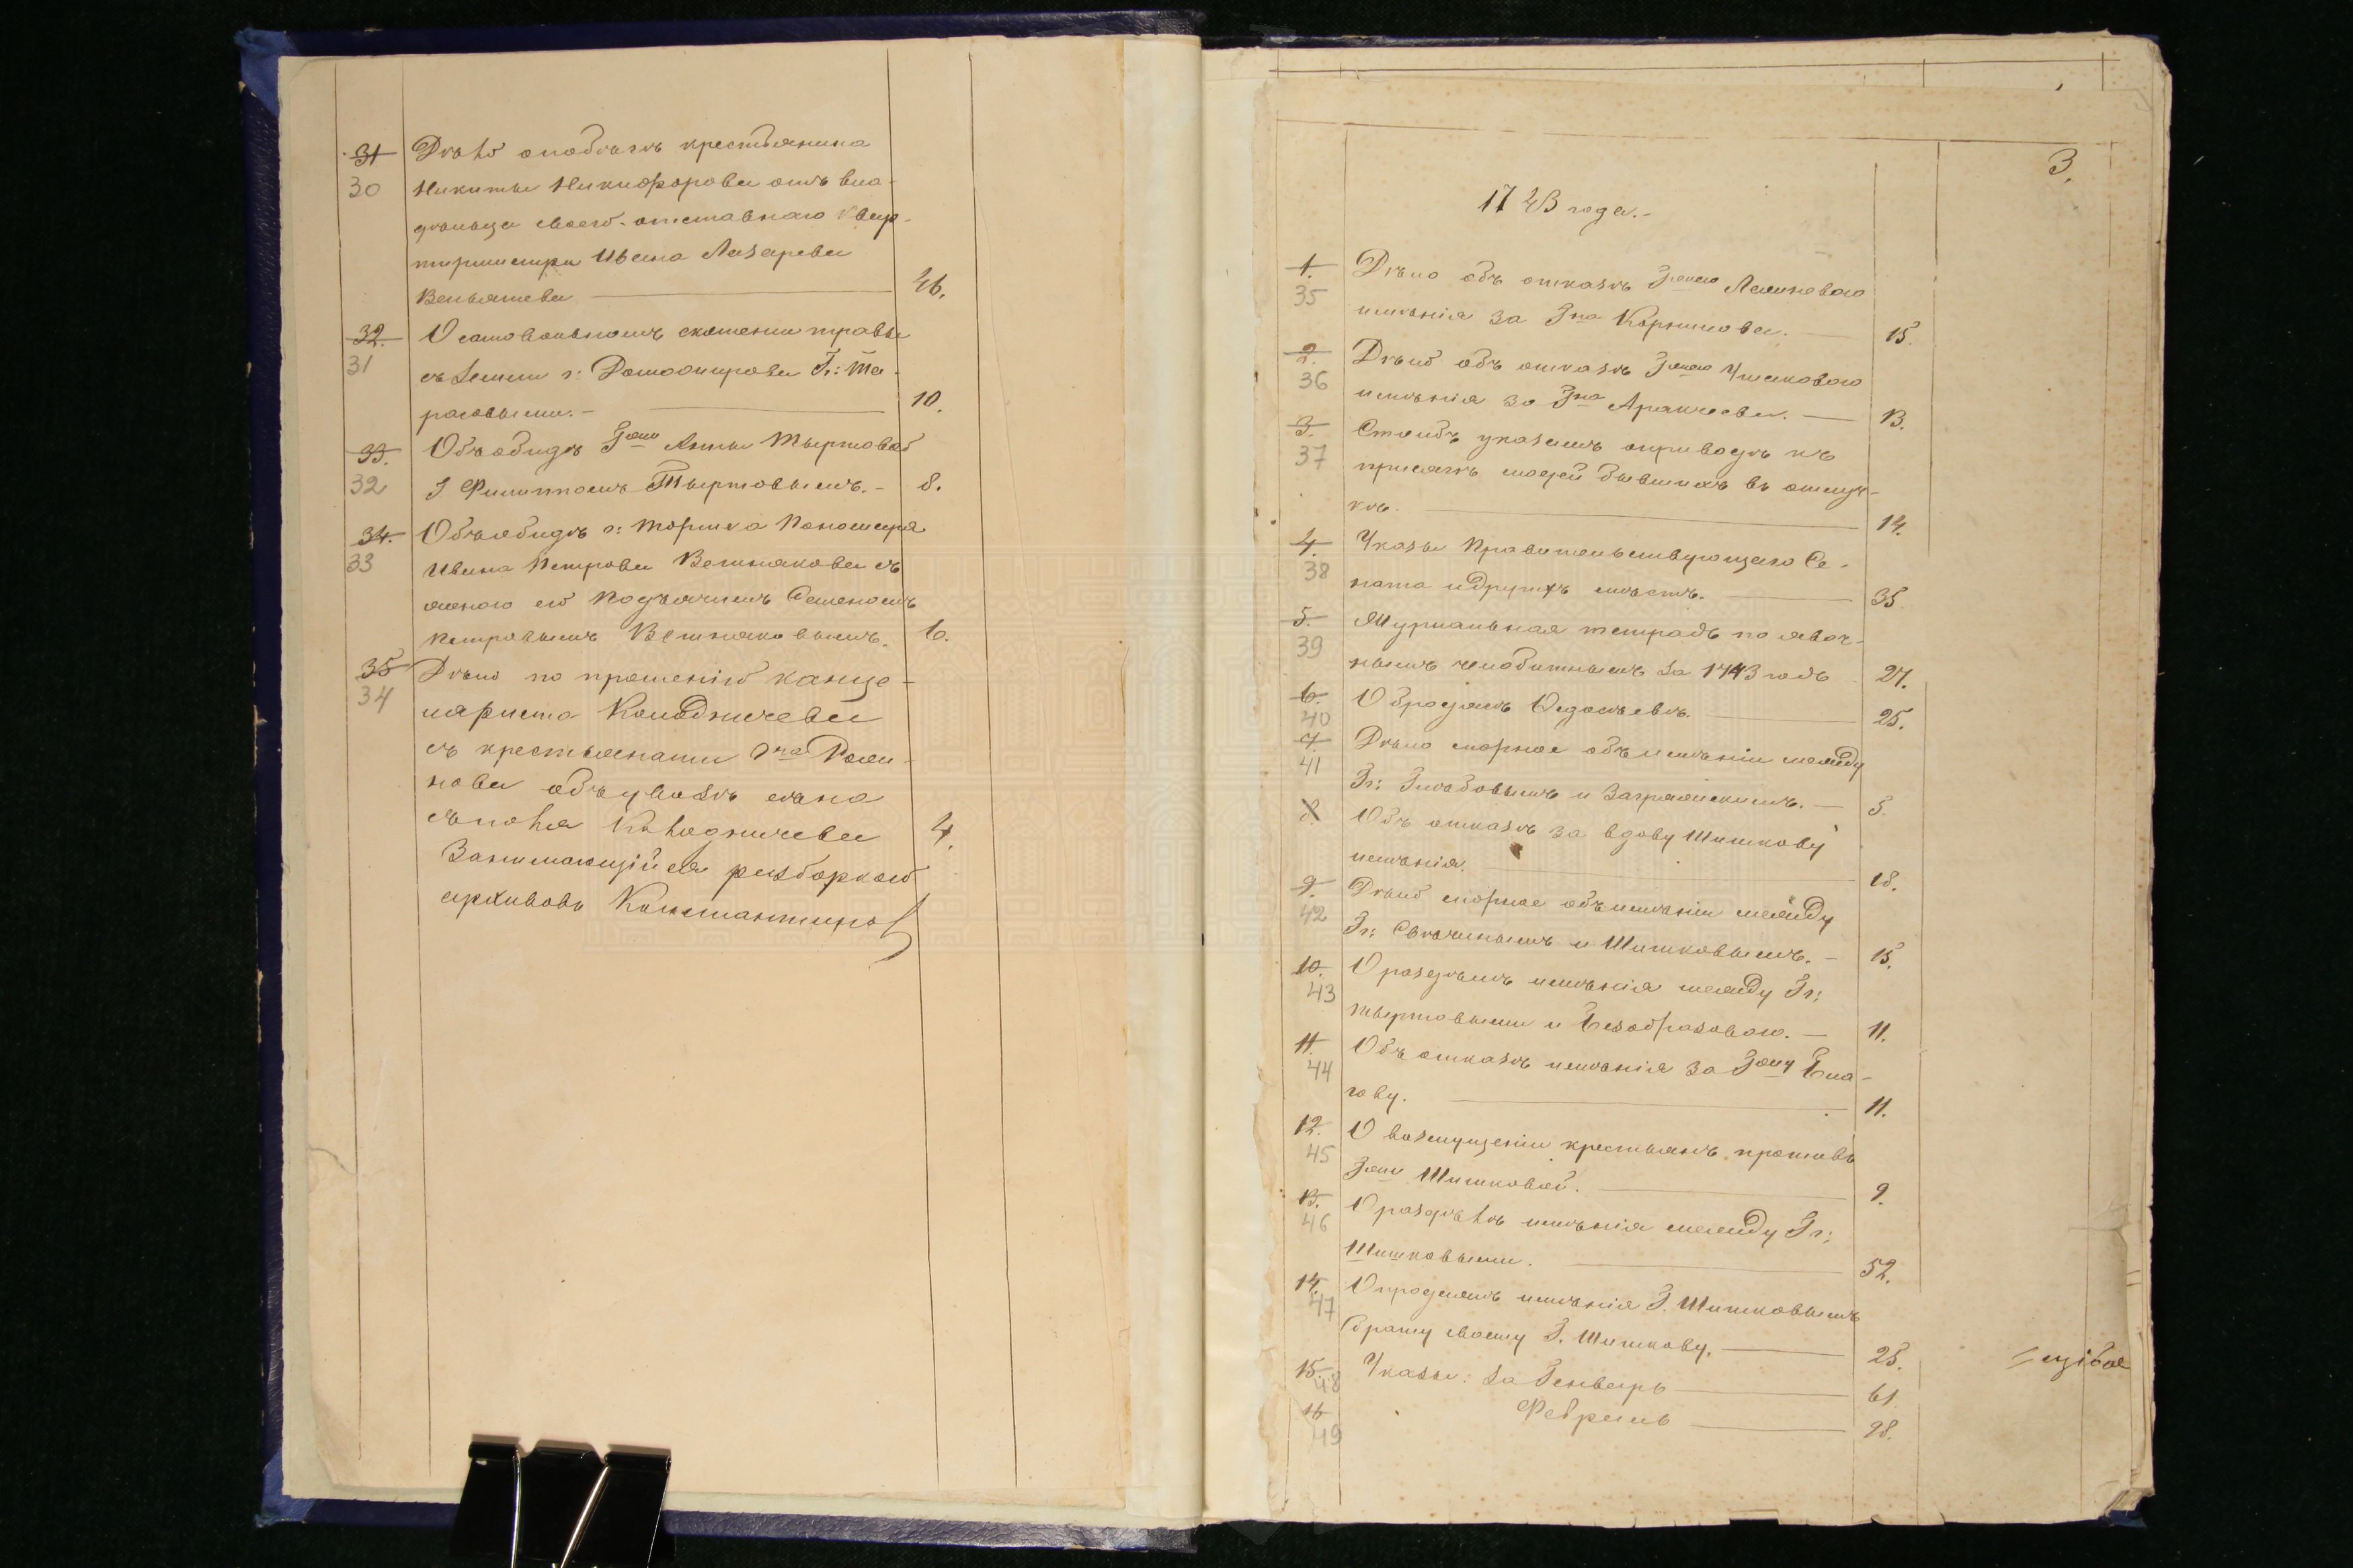 31 Дѣло о побѣгѣ крестьянина
30 Никиты Никифорова отъ вла-
дѣльца своего отставнаго квар-
тирмистра Ивана Лазарева
Вельяшева 46.
32. О самовольномъ скошении травы
31 съ земли г: Домооигрова Гг: Та-
раговыми. 10.
33. Объ обидѣ Гжи Анны Тыртовой
32 Г Филиппомъ Тыртовымъ. 8.
34. Объ обидѣ г: Торжка Поношира
33 Ивана Петрова Ветнякова съ
женою его Подъячимъ Семеномъ
Петровымъ Ветняковымъ. 6.
35 Дѣло по прошенію канце-
34 ляриста Колодничева
съ крестьянами Гна Роми-
нова объ увозѣ сѣна
съ поля Колодничева 4.
Занимающійся разборкой
архивовъ Константинов
3.
1743 года.
1. Дѣло объ отказѣ Гжею
35 имѣнія за Гна Корнилова. 15.
2. Дѣло объ отказѣ Чисковаго
36 имѣнія за Гна Аракчеева. 13.
3. Столбъ указамъ о приводѣ къ
37 присягѣ людей бывшихъ въ отлуч-
кѣ. 14.
4. Указы Правительствующаго Се-
38 ната и другихъ мѣстъ. 35.
5. Журнальная тетрадь по явоч-
39 нымъ челобитнымъ за 1743 годъ 27.
6. О 25.
40
7. Дѣло спорное объ имѣніи между
41 Гг: Глѣбовымъ и Загряжскимъ. 5.
8. Объ отказѣ за вдову Шишкову
имѣнія. 18.
9. Дѣло спорное объ имѣніи между
42 Гг: Свѣчинымъ и Шишковымъ. 15.
10. О раздѣлѣ имѣнія между Гг:
43 Тыртовыми и Безобразовою. 11.
11. Объ отказѣ имѣнія за Гжу Ела-
44 гову. 11.
12. О возмущеніи крестьянъ противъ
45 Гжи Шишковой. 9.
13. О раздѣлѣ имѣнія между Гг:
46 Шишковыми. 52.
14. О продажѣ имѣнія Г. Шишковымъ
47 брату своему Г. Шишкову. 25.
15. Указы: за Генварь 61.
48
16 Февраль 98.
49